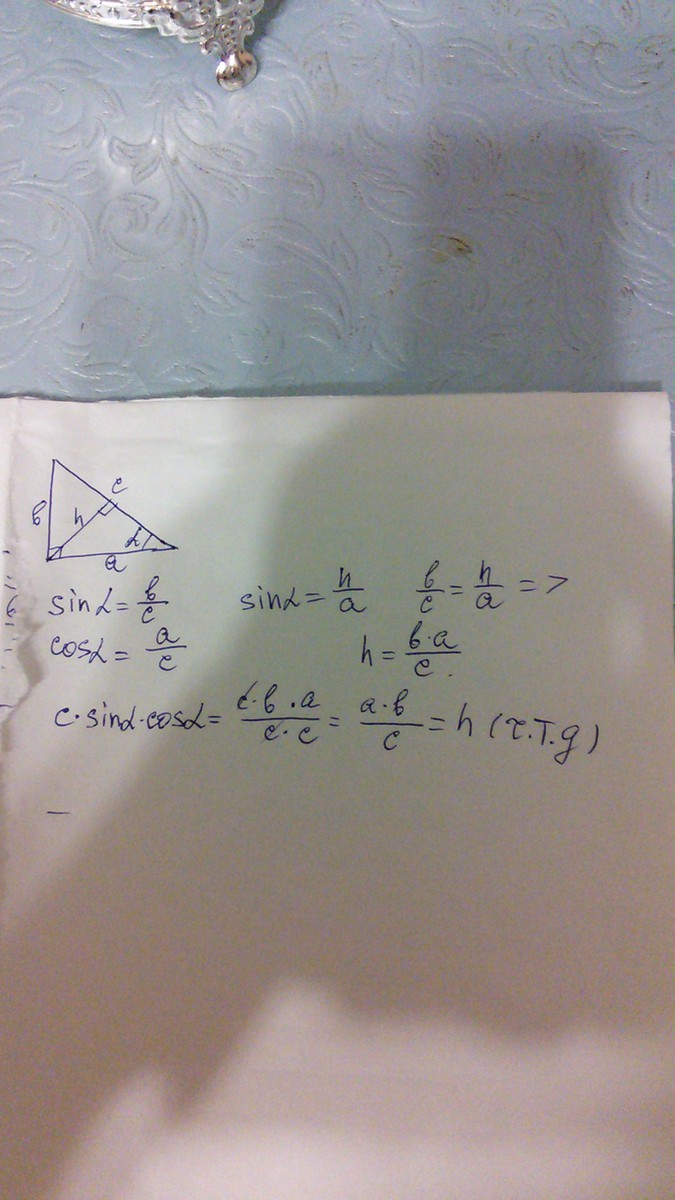 c
в
h
α
a
sinα = в/c    sinα = h/a    в/c = h/a =>
cosα = a/c    h = в·a/c.
c·sinα·cosα = c·в·a/c·c = a·в/c = h (τ.T.g)